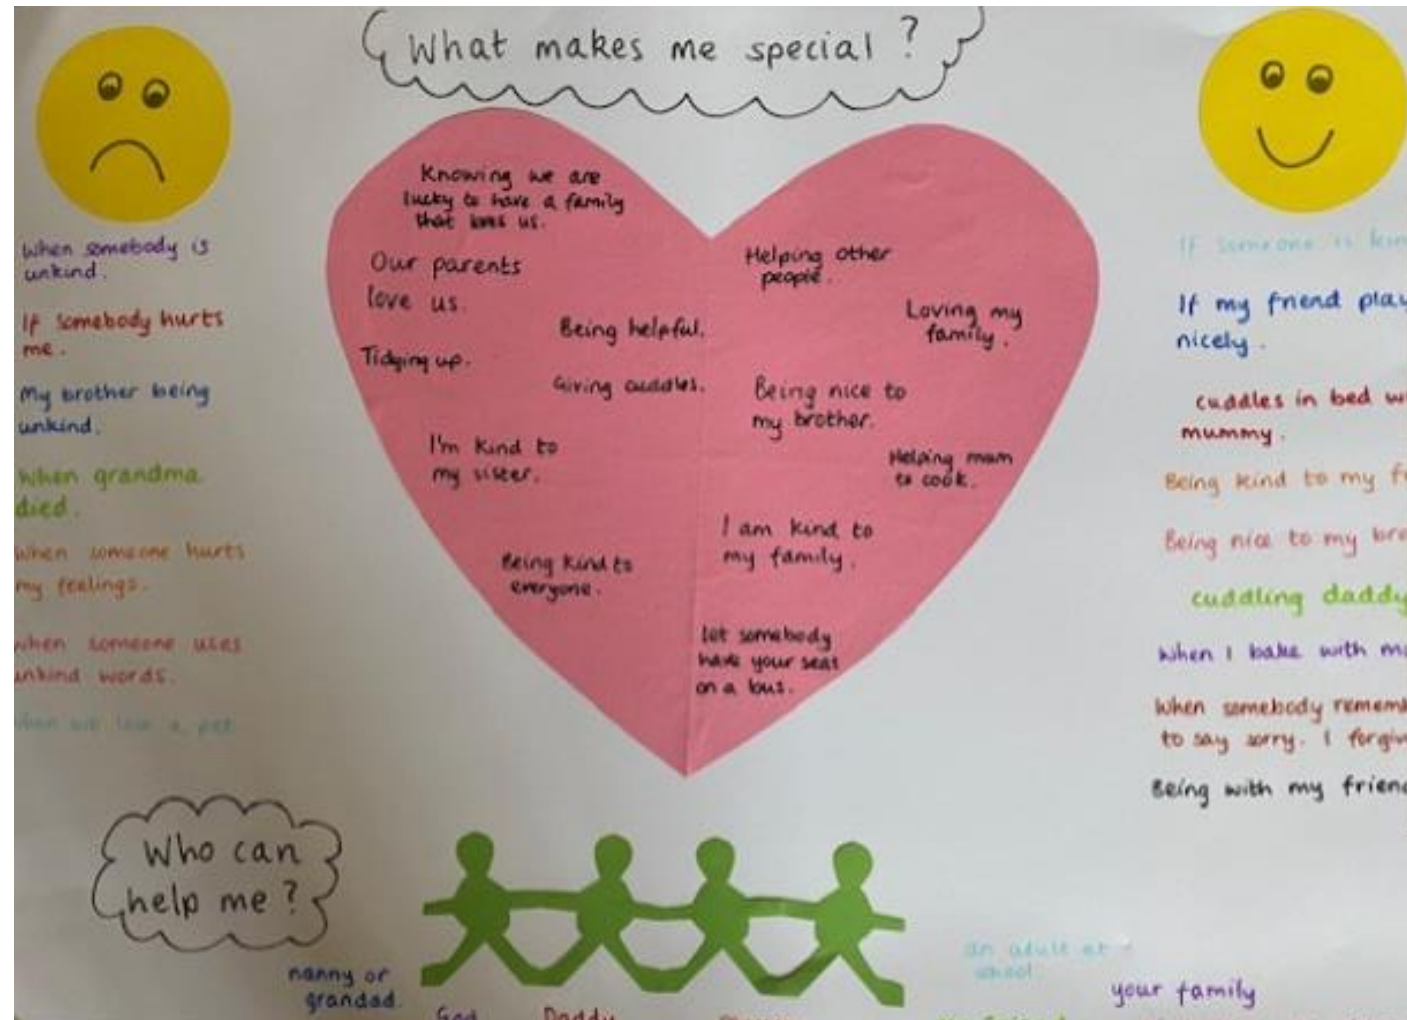 What makes me special?
When somebody is
unkind.
If somebody hurts
me.
My brother being
unkind.
When grandma
died.
When someone hurts
my feelings.
When someone uses
unkind words.
When we lose a pet
Knowing we are
lucky to have a family
that loves us.
Our parents
love us.
Tidying up.
Being helpful.
Giving cuddles.
I'm kind to
my sister.
Being kind to
everyone.
Helping other
people.
Loving my
family.
Being nice to
my brother.
Helping mam
to cook.
I am kind to
my family.
Let somebody
have your seat
on a bus.
If someone is kin
If my friend play
nicely.
cuddles in bed wi
mummy.
Being kind to my f
Being nice to my bro
cuddling daddy
When I bake with m
When somebody rememb
to say sorry. I forgiv
Being with my friend
Who can
help me?
nanny or
grandad.
God
Daddy
an adult at
school
your family